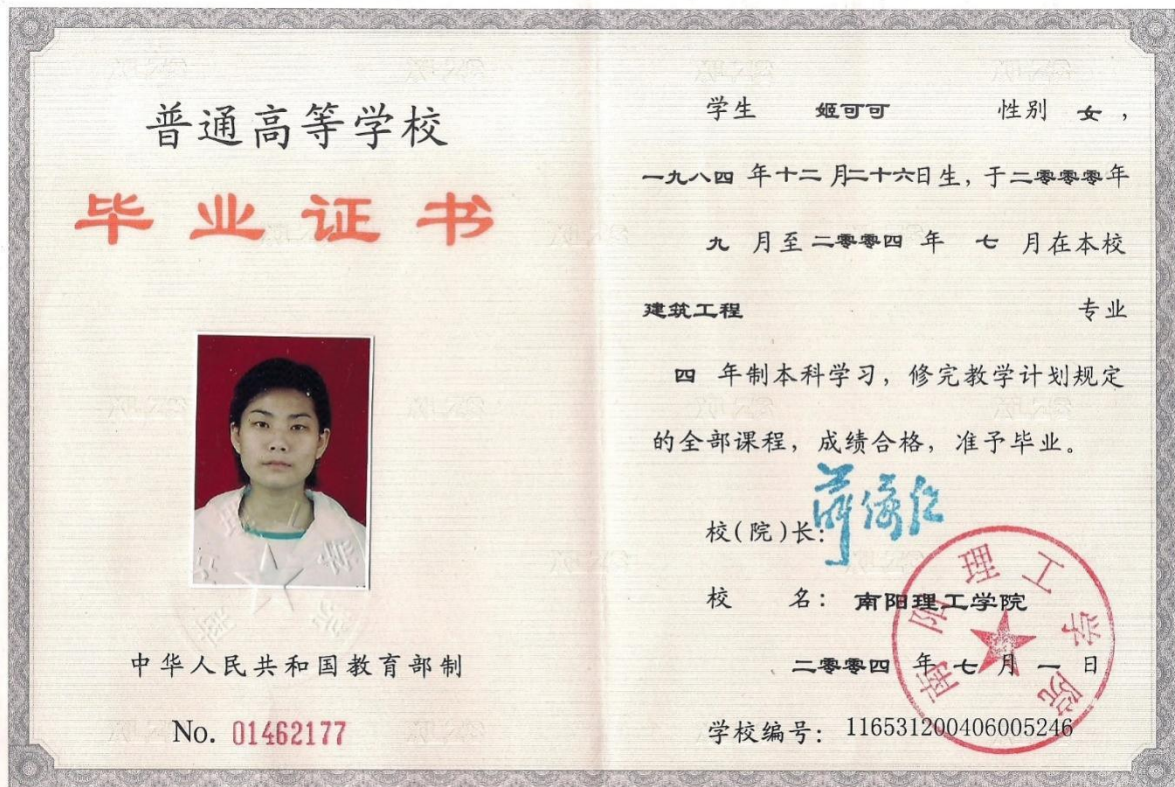 普通高等学校
毕业证书
中华人民共和国教育部制
No. 01462177
学生 姬可可 性别 女，
一九八四 年十二 月二十六日生，于二零零零年
九 月至二零零四 年 七 月在本校
建筑工程 专业
四 年制本科学习，修完教学计划规定
的全部课程，成绩合格，准予毕业。
校(院)长：
校 名： 南阳理工学院
二零零四 年 七 月 一 日
学校编号： 116531200406005246
南阳理工学院